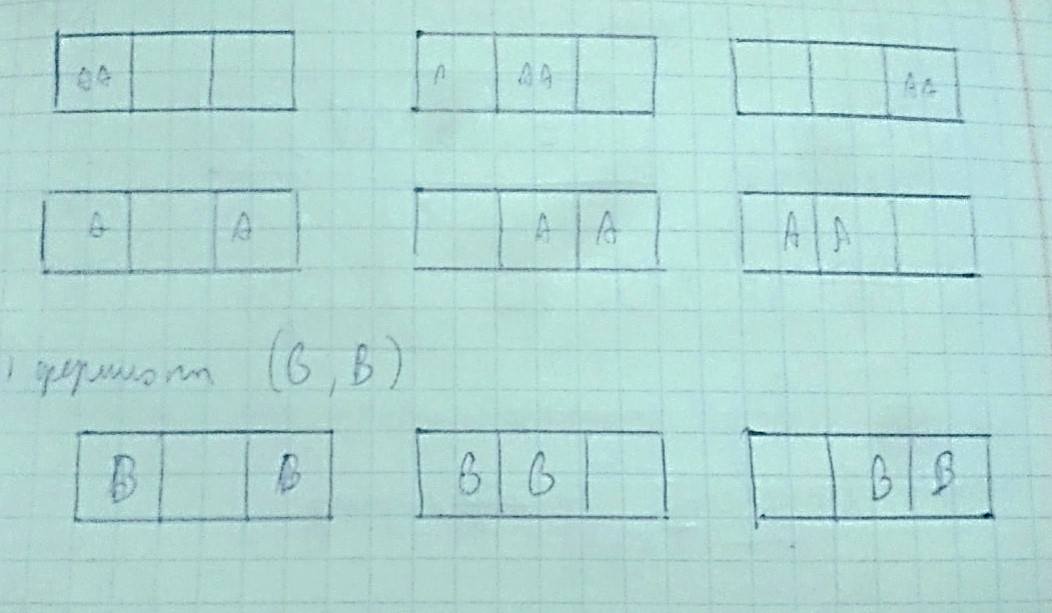 AA А AA AA
A A A A A A
фермионы (B, B)
B B B B B B